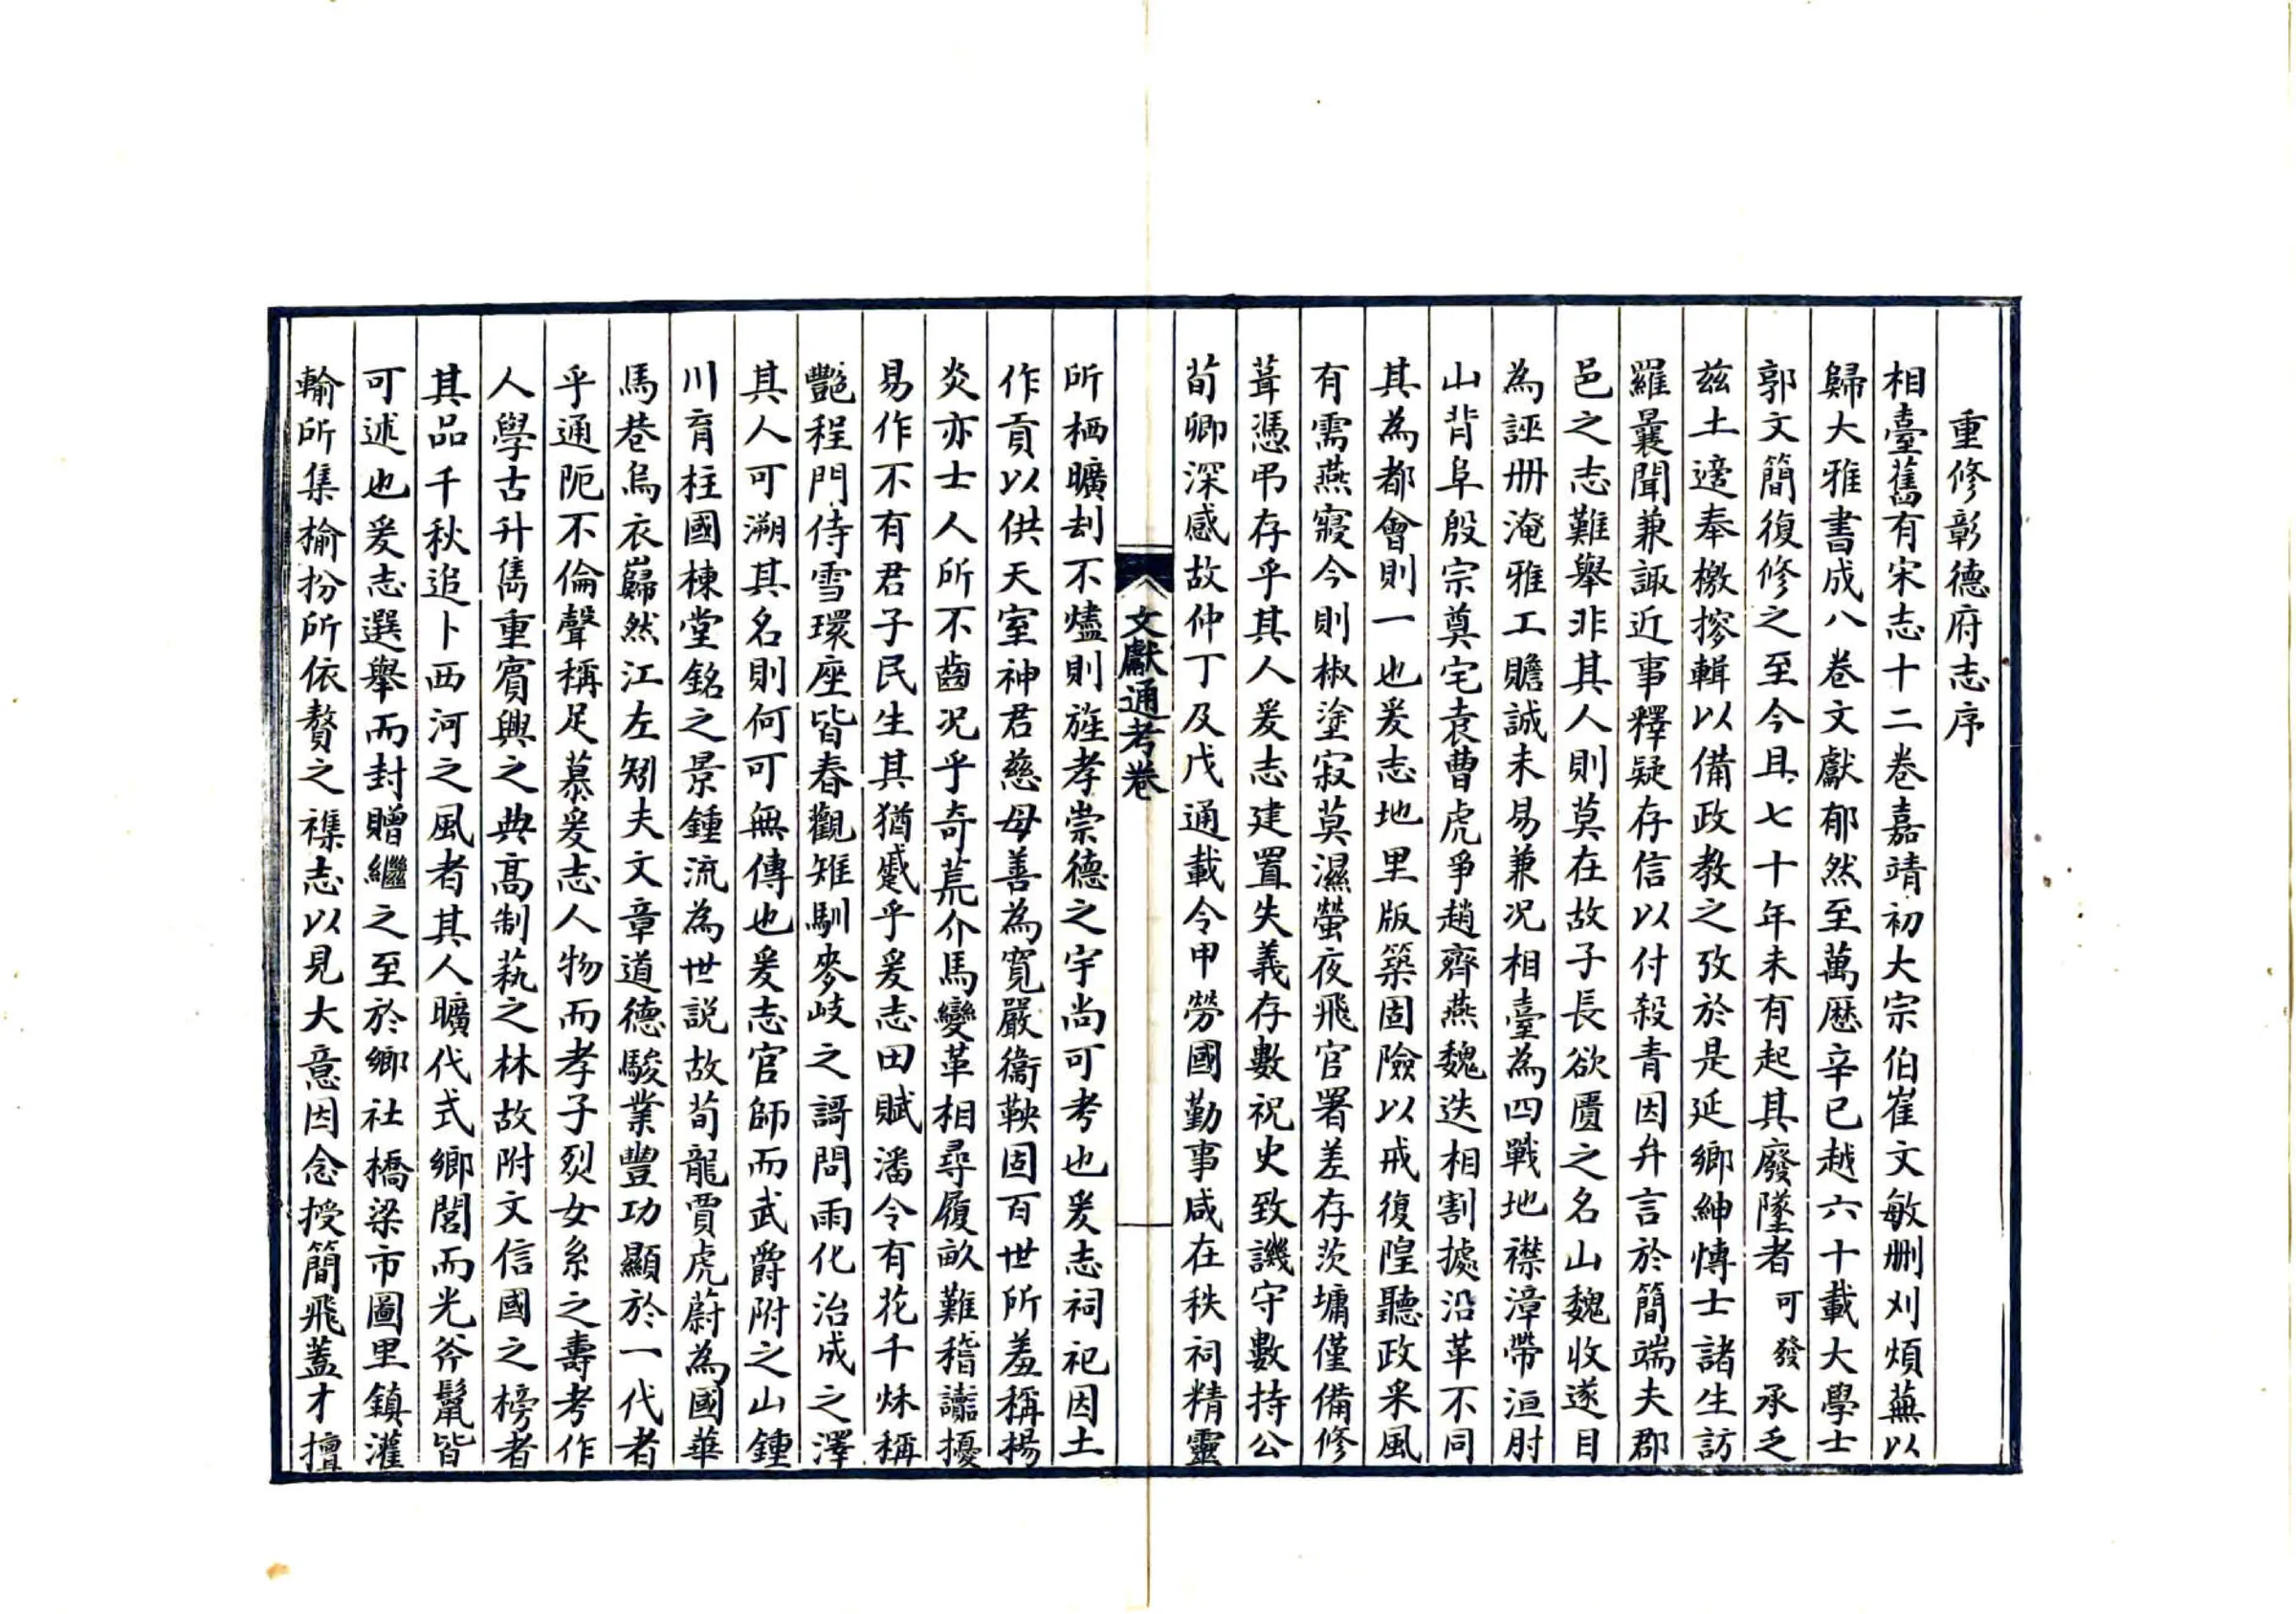 重修彰德府志序
相臺舊有宋志十二卷嘉靖初大宗伯崔文敏刪刈煩蕪以
歸大雅書成八卷文獻郁然至萬歷辛巳越六十載大學士
郭文簡復修之至今且七十年未有起其廢墜者可發承乏
茲土適奉檄搜輯以備政教之攷於是延鄉紳愽士諸生訪
羅曩聞兼諏近事釋疑存信以付殺青因弁言於簡端夫郡
邑之志難舉非其人則莫在故子長欲匱之名山魏收遂目
為誣冊淹雅工贍誠未易兼况相臺為四戰地襟漳帶洹肘
山背阜殷宗奠宅袁曹虎爭趙齊燕魏迭相割據沿革不同
其為都會則一也爰志地里版築固險以戒復隍聽政采風
有需燕寢今則椒塗寂莫濕螢夜飛官署差存茨墉僅備修
葺憑吊存乎其人爰志建置失義存數祝史致譏守數持公
荀卿深感故仲丁及戊通載令甲勞國勤事咸在秩祠精靈
文獻通考卷
所栖曠刦不燼則旌孝崇德之宇尚可考也爰志祠祀因土
作貢以供天室神君慈母善為寬嚴衞鞅固百世所羞稱楊
炎亦士人所不齒况乎奇荒介馬變革相尋履畝難稽讟擾
易作不有君子民生其猶蹙乎爰志田賦潘令有花千秌稱
豔程門侍雪環座皆春觀雉馴麥岐之謌問雨化治成之澤
其人可溯其名則何可無傳也爰志官師而武爵附之山鍾
川育柱國棟堂銘之景鍾流為世説故荀龍賈虎蔚為國華
馬巷烏衣巋然江左矧夫文章道德駿業豐功顯於一代者
乎通阨不倫聲稱足慕爰志人物而孝子烈女系之壽考作
人學古升雋重賓興之典高制蓺之林故附文信國之榜者
其品千秋追卜西河之風者其人曠代式鄉閭而光斧鬣皆
可述也爰志選舉而封贈繼之至於鄉社橋梁市圖里鎮灌
輸所集榆枌所依贅之襍志以見大意因念授簡飛蓋才擅